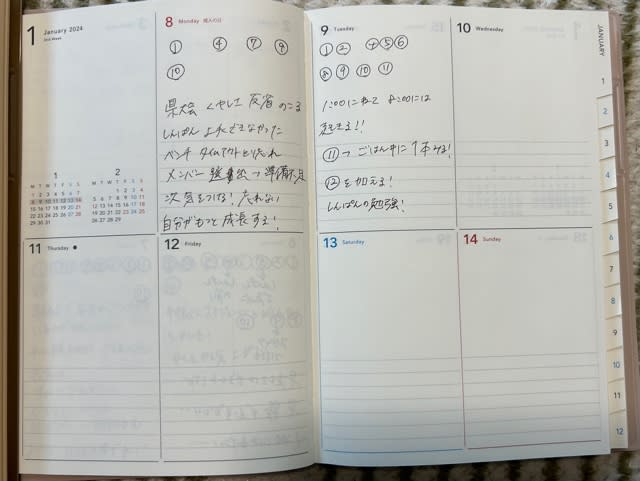 1 January 2024
2nd Week
1
M T W T F S S
1 2 3 4 5 6 7
8 9 10 11 12 13 14
15 16 17 18 19 20 21
22 23 24 25 26 27 28
29 30 31
2
M T W T F S S
1 2 3 4
5 6 7 8 9 10 11
12 13 14 15 16 17 18
19 20 21 22 23 24 25
26 27 28 29
8 Monday 成人の日
① ④ ⑦ ⑨
⑩
県大会 くやしい 反省 のこる
しんぱん よくできなかった
ベンチ タイムアウトとりたれ
メンバー → 準備不足
次 気をつける! 忘れない
自分がもっと 成長する!
9 Tuesday
① ② ④ ⑤ ⑥
⑧ ⑨ ⑩ ⑪
1:00にねて 8:00には
起きる!!
⑪→ごはん中に1本みる!
⑫を加える!
しんぱんの勉強!
10 Wednesday
11 Thursday ●
12 Friday
13 Saturday
14 Sunday
JANUARY
1
2
3
4
5
6
7
8
9
10
11
12